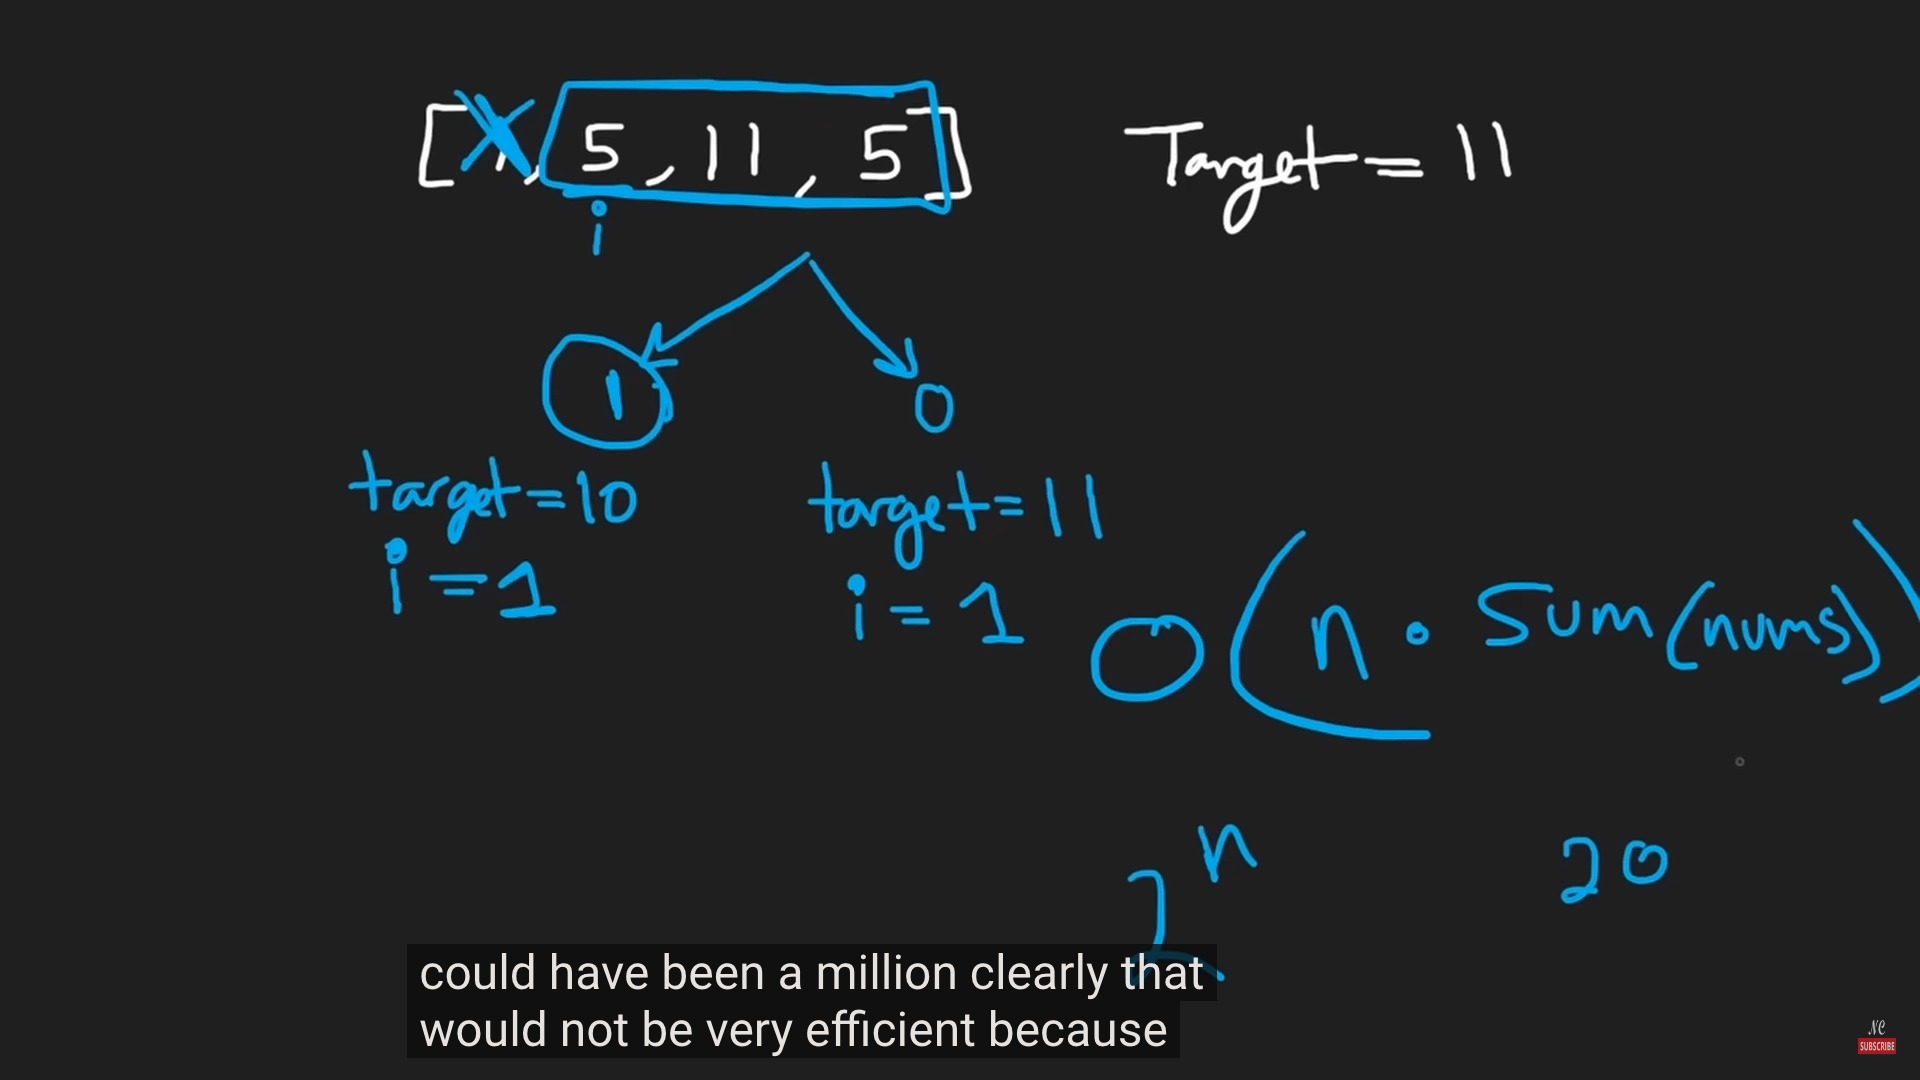 [1, 5, 11, 5] Target = 11
i
1 0
target=10 target=11
i=1 i=1
O(n · sum(nums))
2^n 20
could have been a million clearly that
would not be very efficient because
NC
SUBSCRIBE